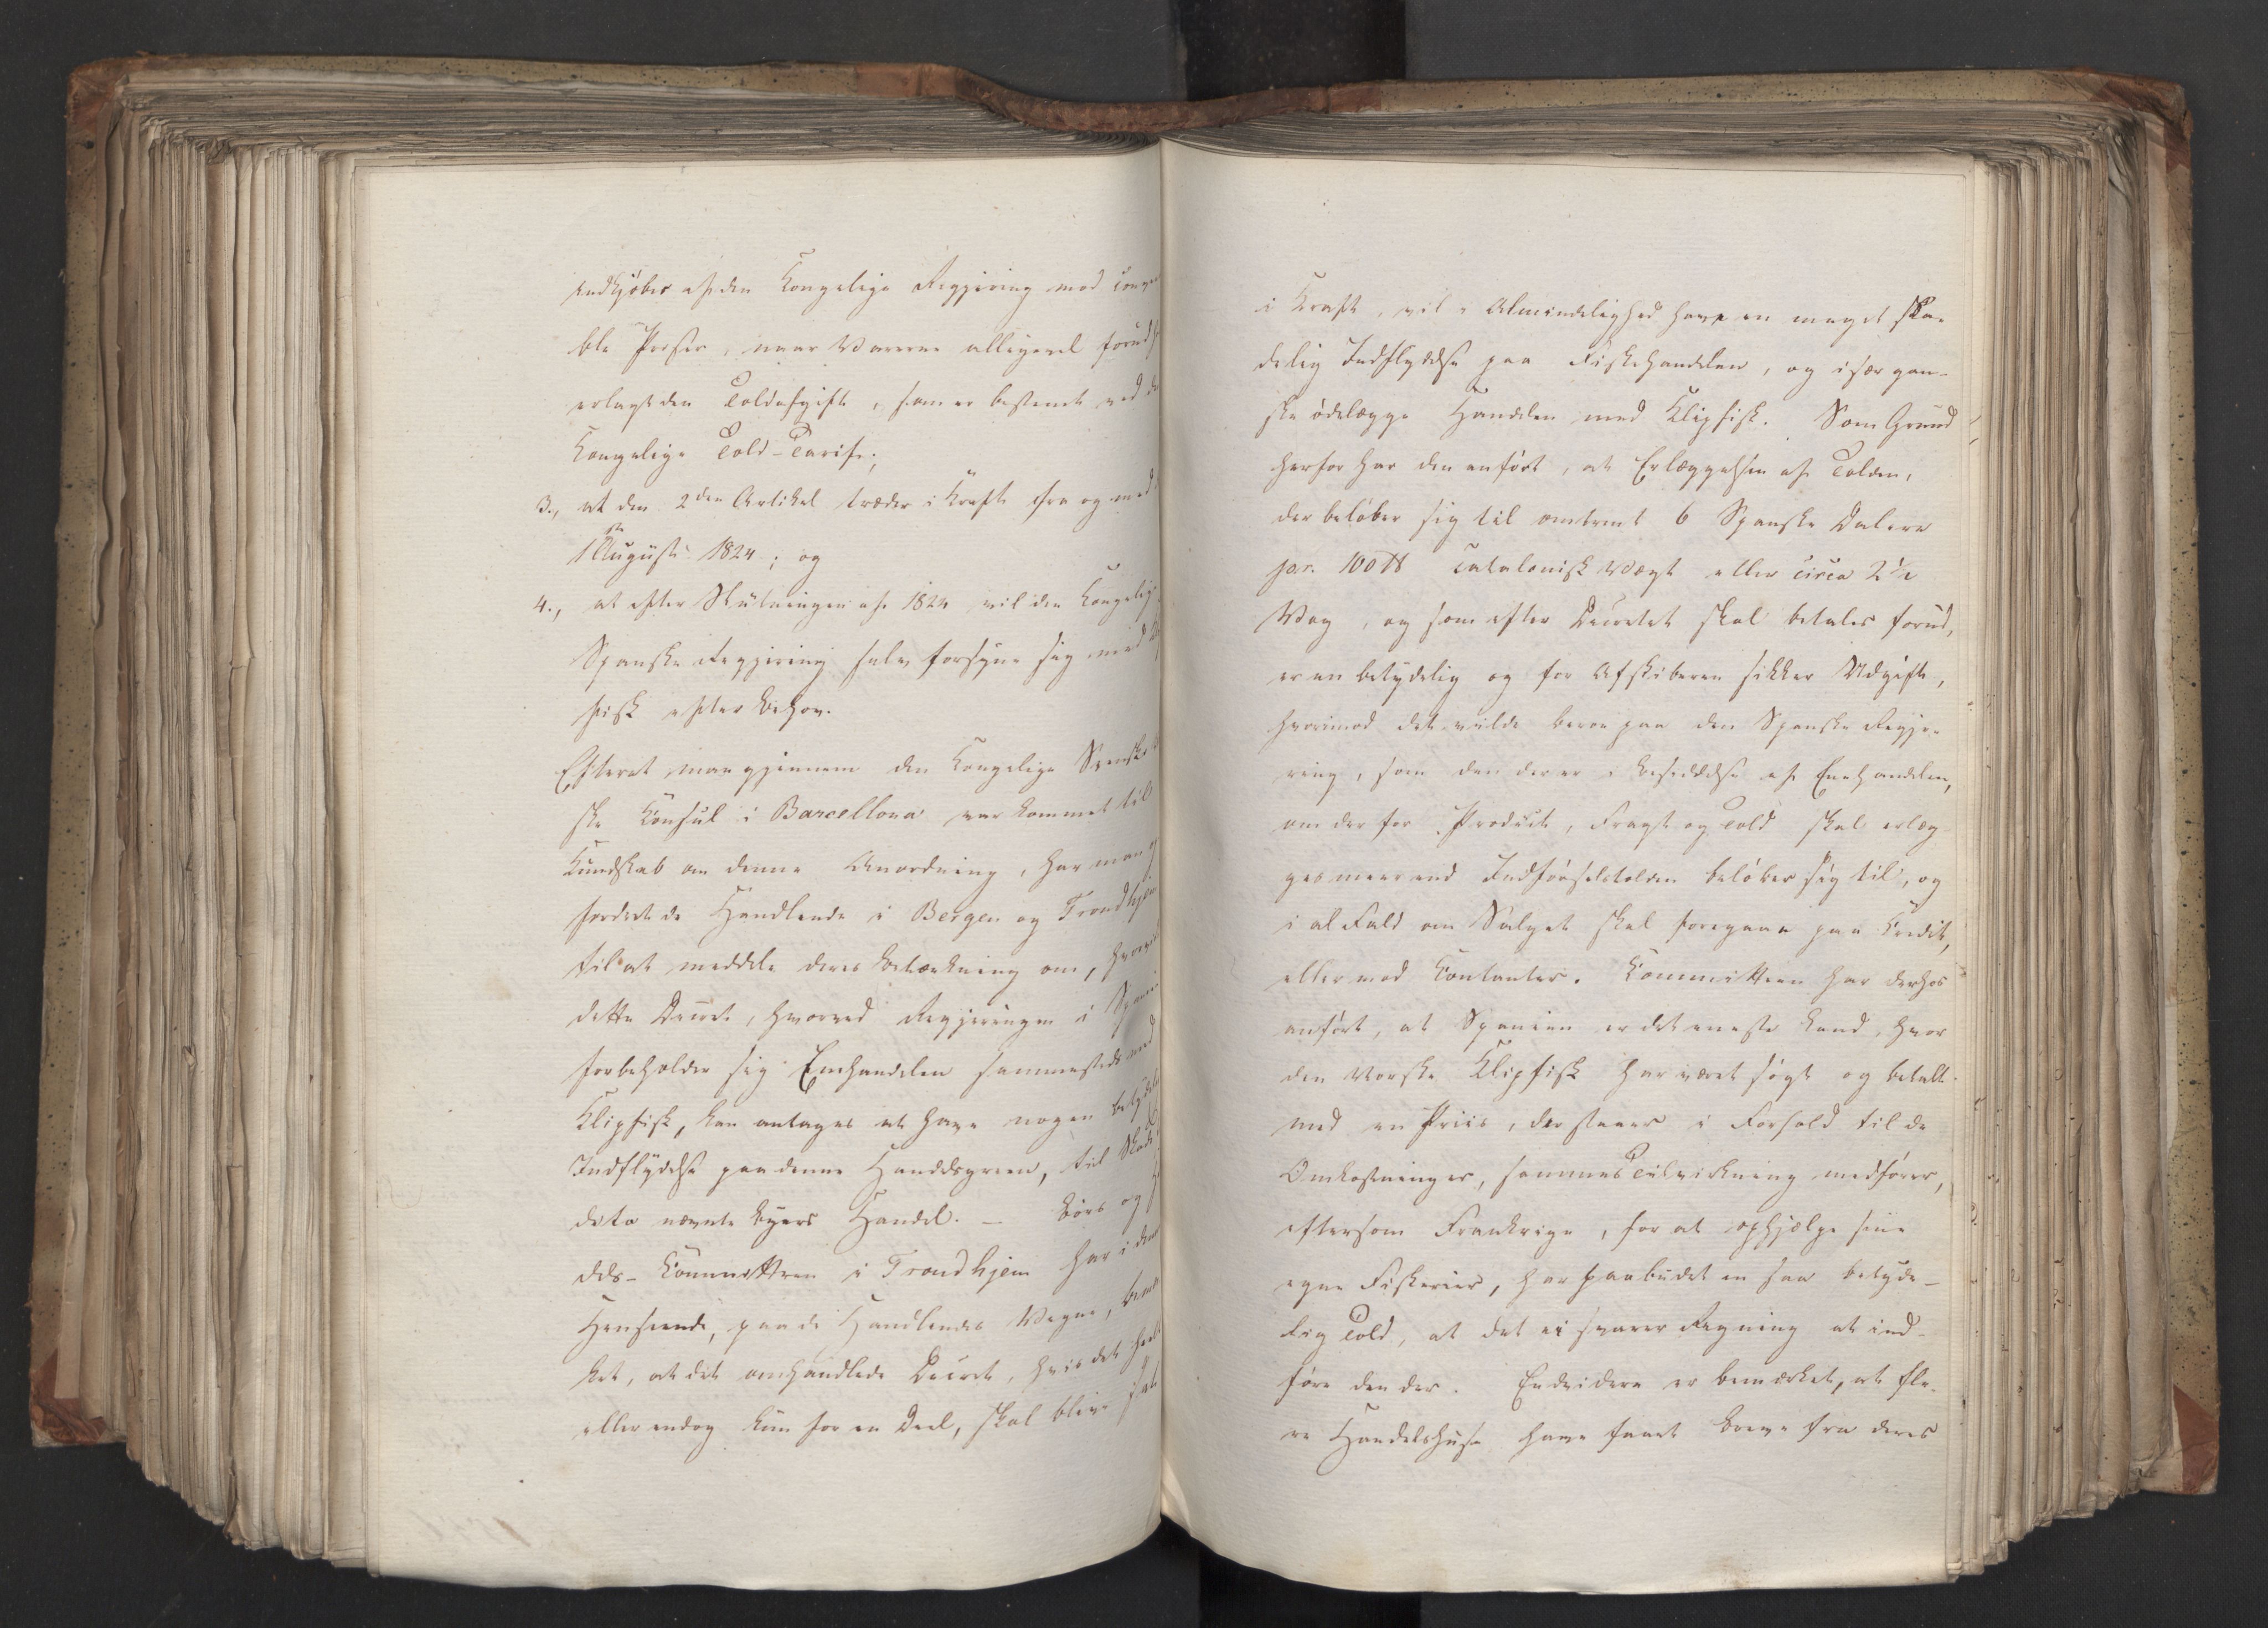 indkjøbes af den Kongelige Regjering mod
ble Priser, naar Varerne alligevel
erlagt den Toldafgift, som er bestemt ved
Kongelige Told-Tarif;
3., at den 2den Artikel træder i Kraft fra og med
1ste August 1824; og
4., at efter Slutningen af 1824 vil den
Spanske Regjering selv forsyne sig med
fisk efter Behov.
Efterat man gjennem den Kongelige
ske Consul i Barcellona var kommet til
Kundskab om denne Anordning, har man
fordret de Handlende i Bergen og
til at meddele deres Betænkning om,
dette Decret, hvorved Regjeringen i
forbeholder sig Eenhandelen sammesteds med
Klipfisk, kan antages at have nogen
Indflydelse paa denne Handelsgreen, til
dito nævnte Byers Handel. — Børs og
dels-Committeen i Trondhjem har i
Henseende, paa de Handlendes Vegne,
ket, at det omhandlede Decret, hvis det
eller endog kun for en Deel, skal blive
i Kraft, vil i Almindelighed have en meget ska-
delig Indflydelse paa Fiskehandelen, og især gan-
ske ødelægge Handelen med Klipfisk. Som Grund
herfor har den anført, at Erlæggelsen af Tolden,
der beløber sig til omtrent 6 Spanske Dalere
pr. 100 ℔ Catalonisk Vægt eller circa 2½
Vog, og som efter Decretet skal betales forud,
er en betydelig og for Afskiberen sikker Udgift,
hvorimod det vilde beroe paa den Spanske Regje-
ring, som den der er i Besiddelse af Eenhandelen,
om der for Product, Fragt og Told skal erlæg-
ges meer end Indførselstolden beløber sig til, og
i al Fald om Salget skal foregaae paa Credit,
eller mod Contanter. Committeen har derhos
anført, at Spanien er det eneste Land, hvor
den Norske Klipfisk har været søgt og betalt
med en Priis, der staaer i Forhold til de
Omkostninger, sammes Tilvirkning medfører,
eftersom Frankrige, for at ophjælpe sine
egne Fiskerier, har paabudet en saa betyde-
lig Told, at det ei svarer Regning at ind-
føre den der. Endvidere er bemærket, at fle-
re Handelshuse have faaet Breve fra deres